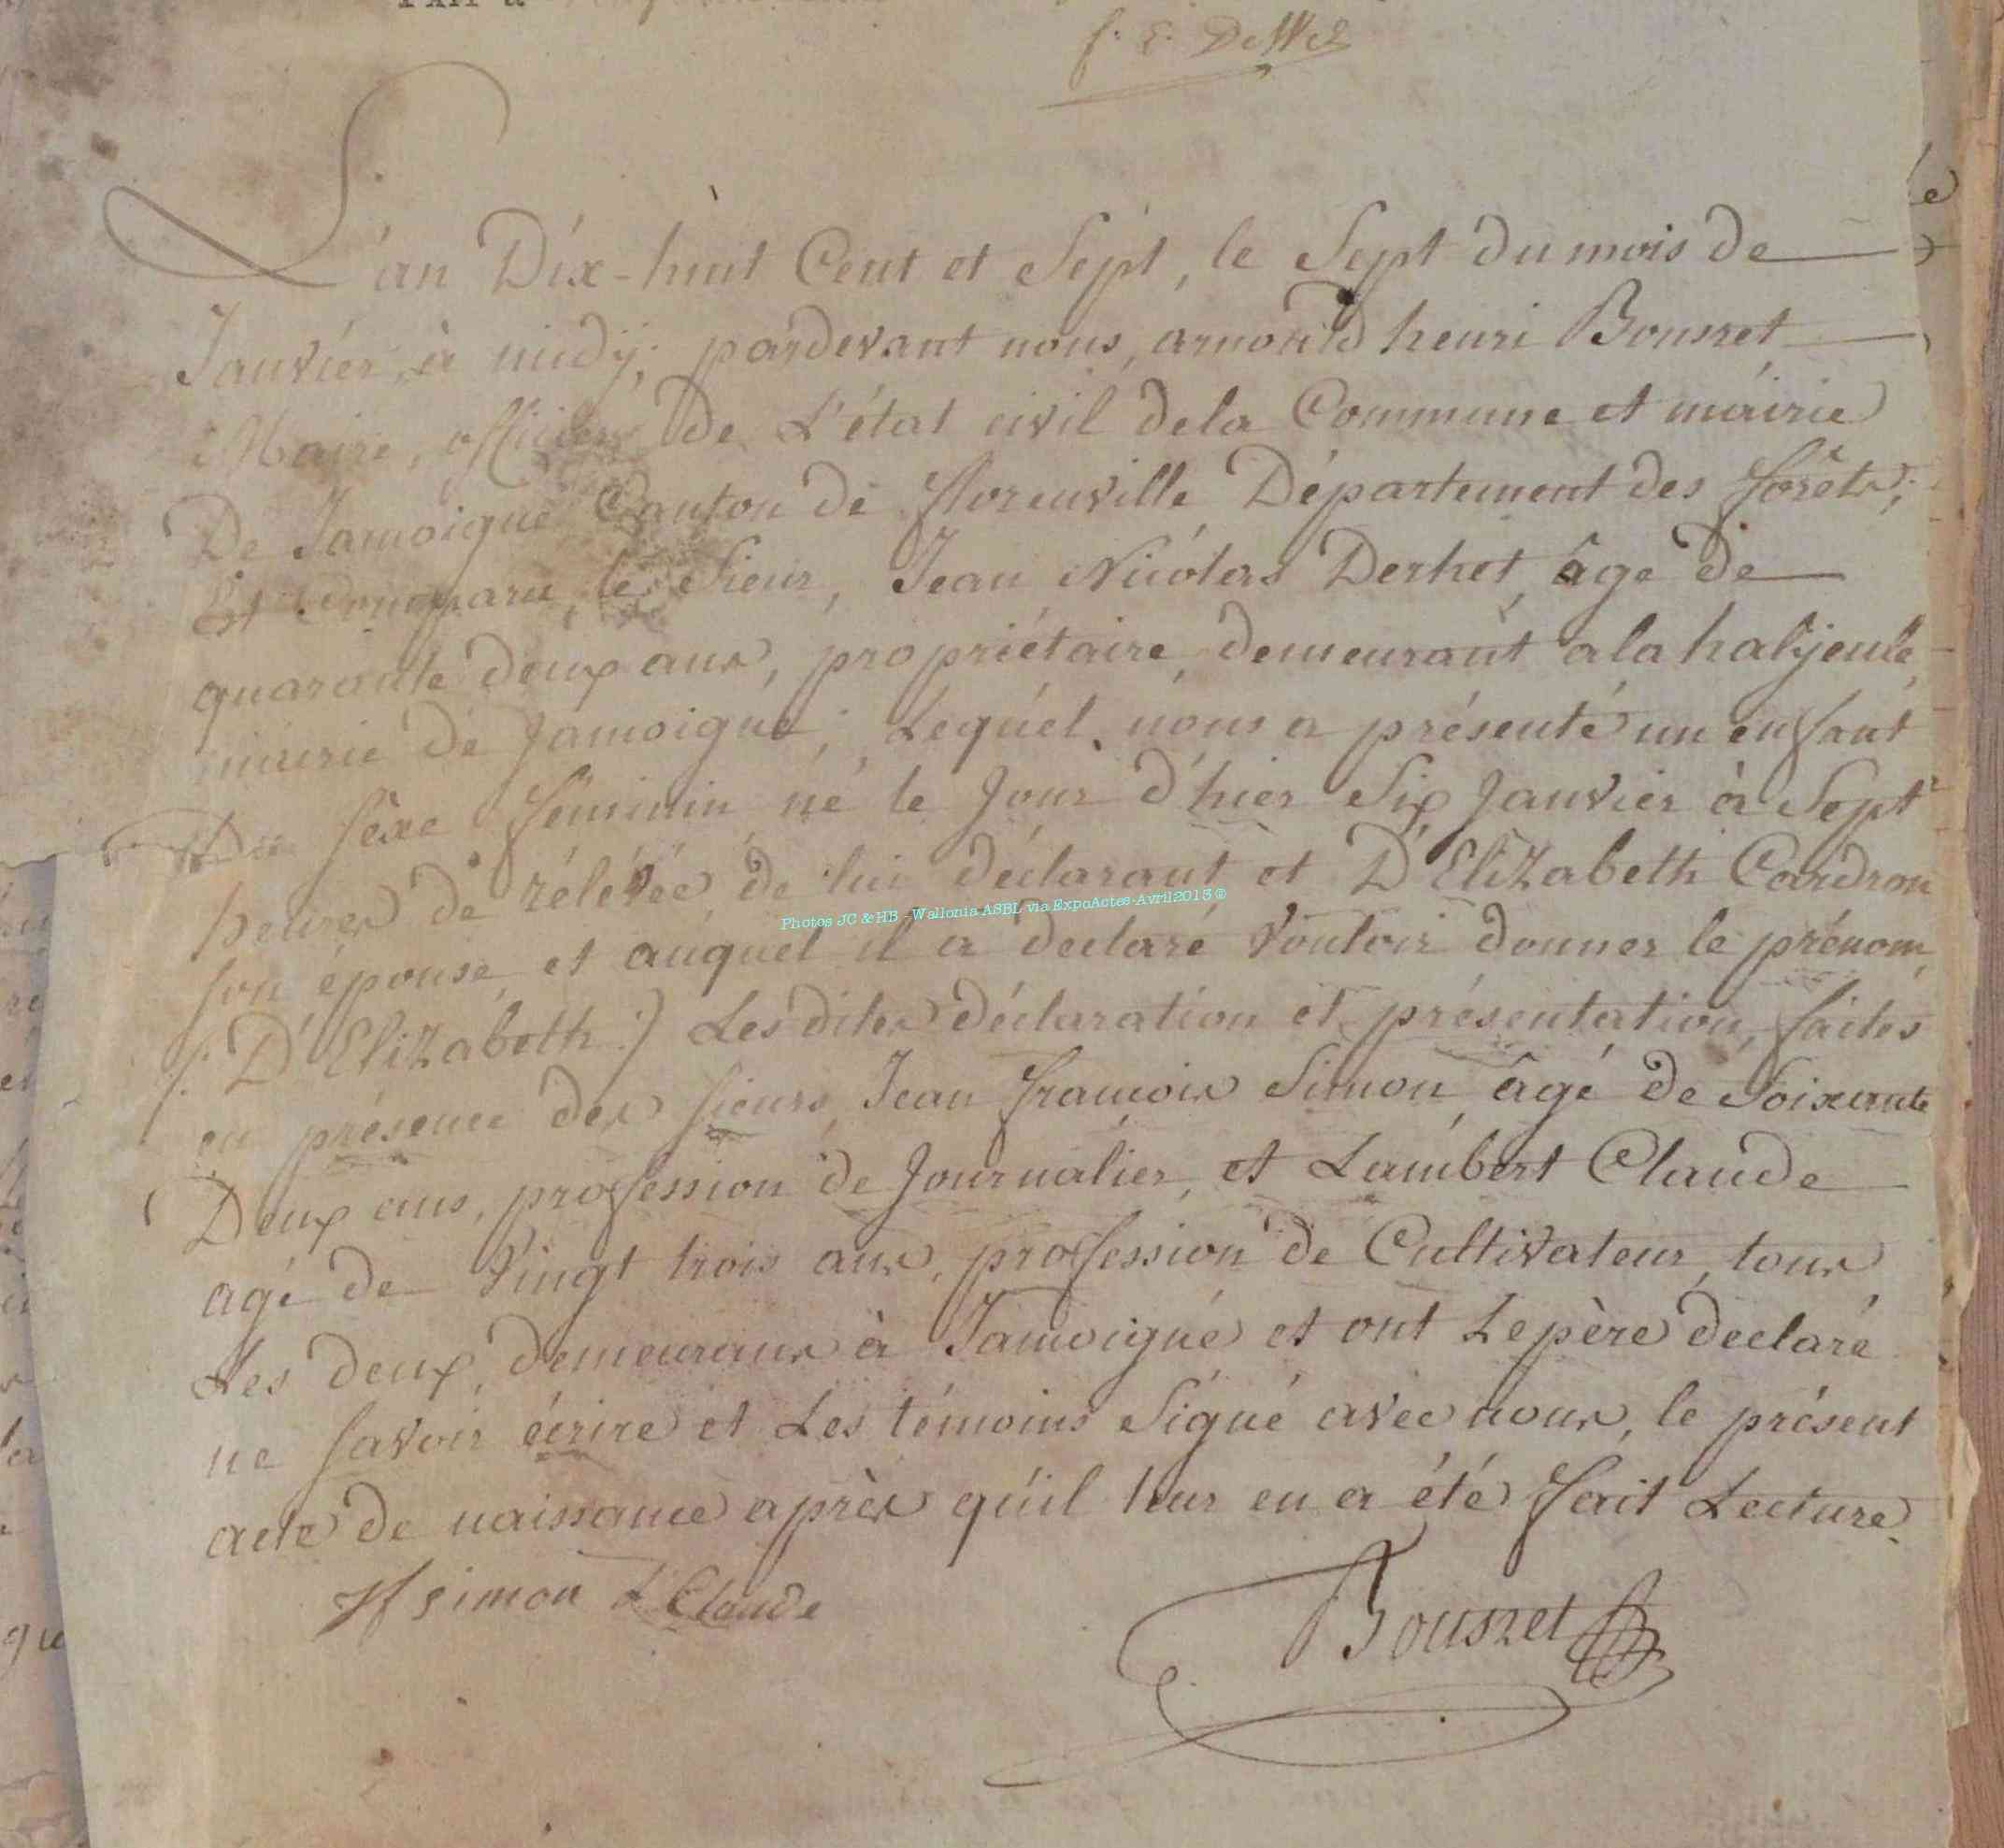 L'an Dix-huit Cent et Sept, le Sept du mois de
Janvier, à midÿ; pardevant nous, arnould henri Bousret
Maire, officier De L'état civil dela Commune et mairie
De Jamoigne Canton de florenville Département des forêts;
Est Comparu le Sieur, Jean Nicolas Derhet, âgé de
quarante deux ans, propriétaire, demeurant ala
mairie de Jamoigne; Lequel nous a présenté un enfant
Du sèxe féminin né le Jour d'hier Six Janvier à Sept
heures de rélévée de lui déclarant et D'Elizabeth Cardron
son épouse, et auquel il a declaré Vouloir donner le prénom,
(: D'Elizabeth :) Lesdites déclaration et présentation, faites
en présence des sieurs Jean françois Simon, âgé de Soixante
Deux ans, profession de Journalier, et Lambert Claude
agé de Vingt trois ans, profession de Cultivateur, tous
Les deux, demeurans à Jamoigne et ont Le père declaré
ne savoir écrire et Les témoins Signé avec nous, le présent
acte de naissance après qu'il leur en a été fait Lecture.
Jf simon L Claude
Bousret
Photos JC & HB - Wallonia ASBL via ExpoActes-Avril2015 ©